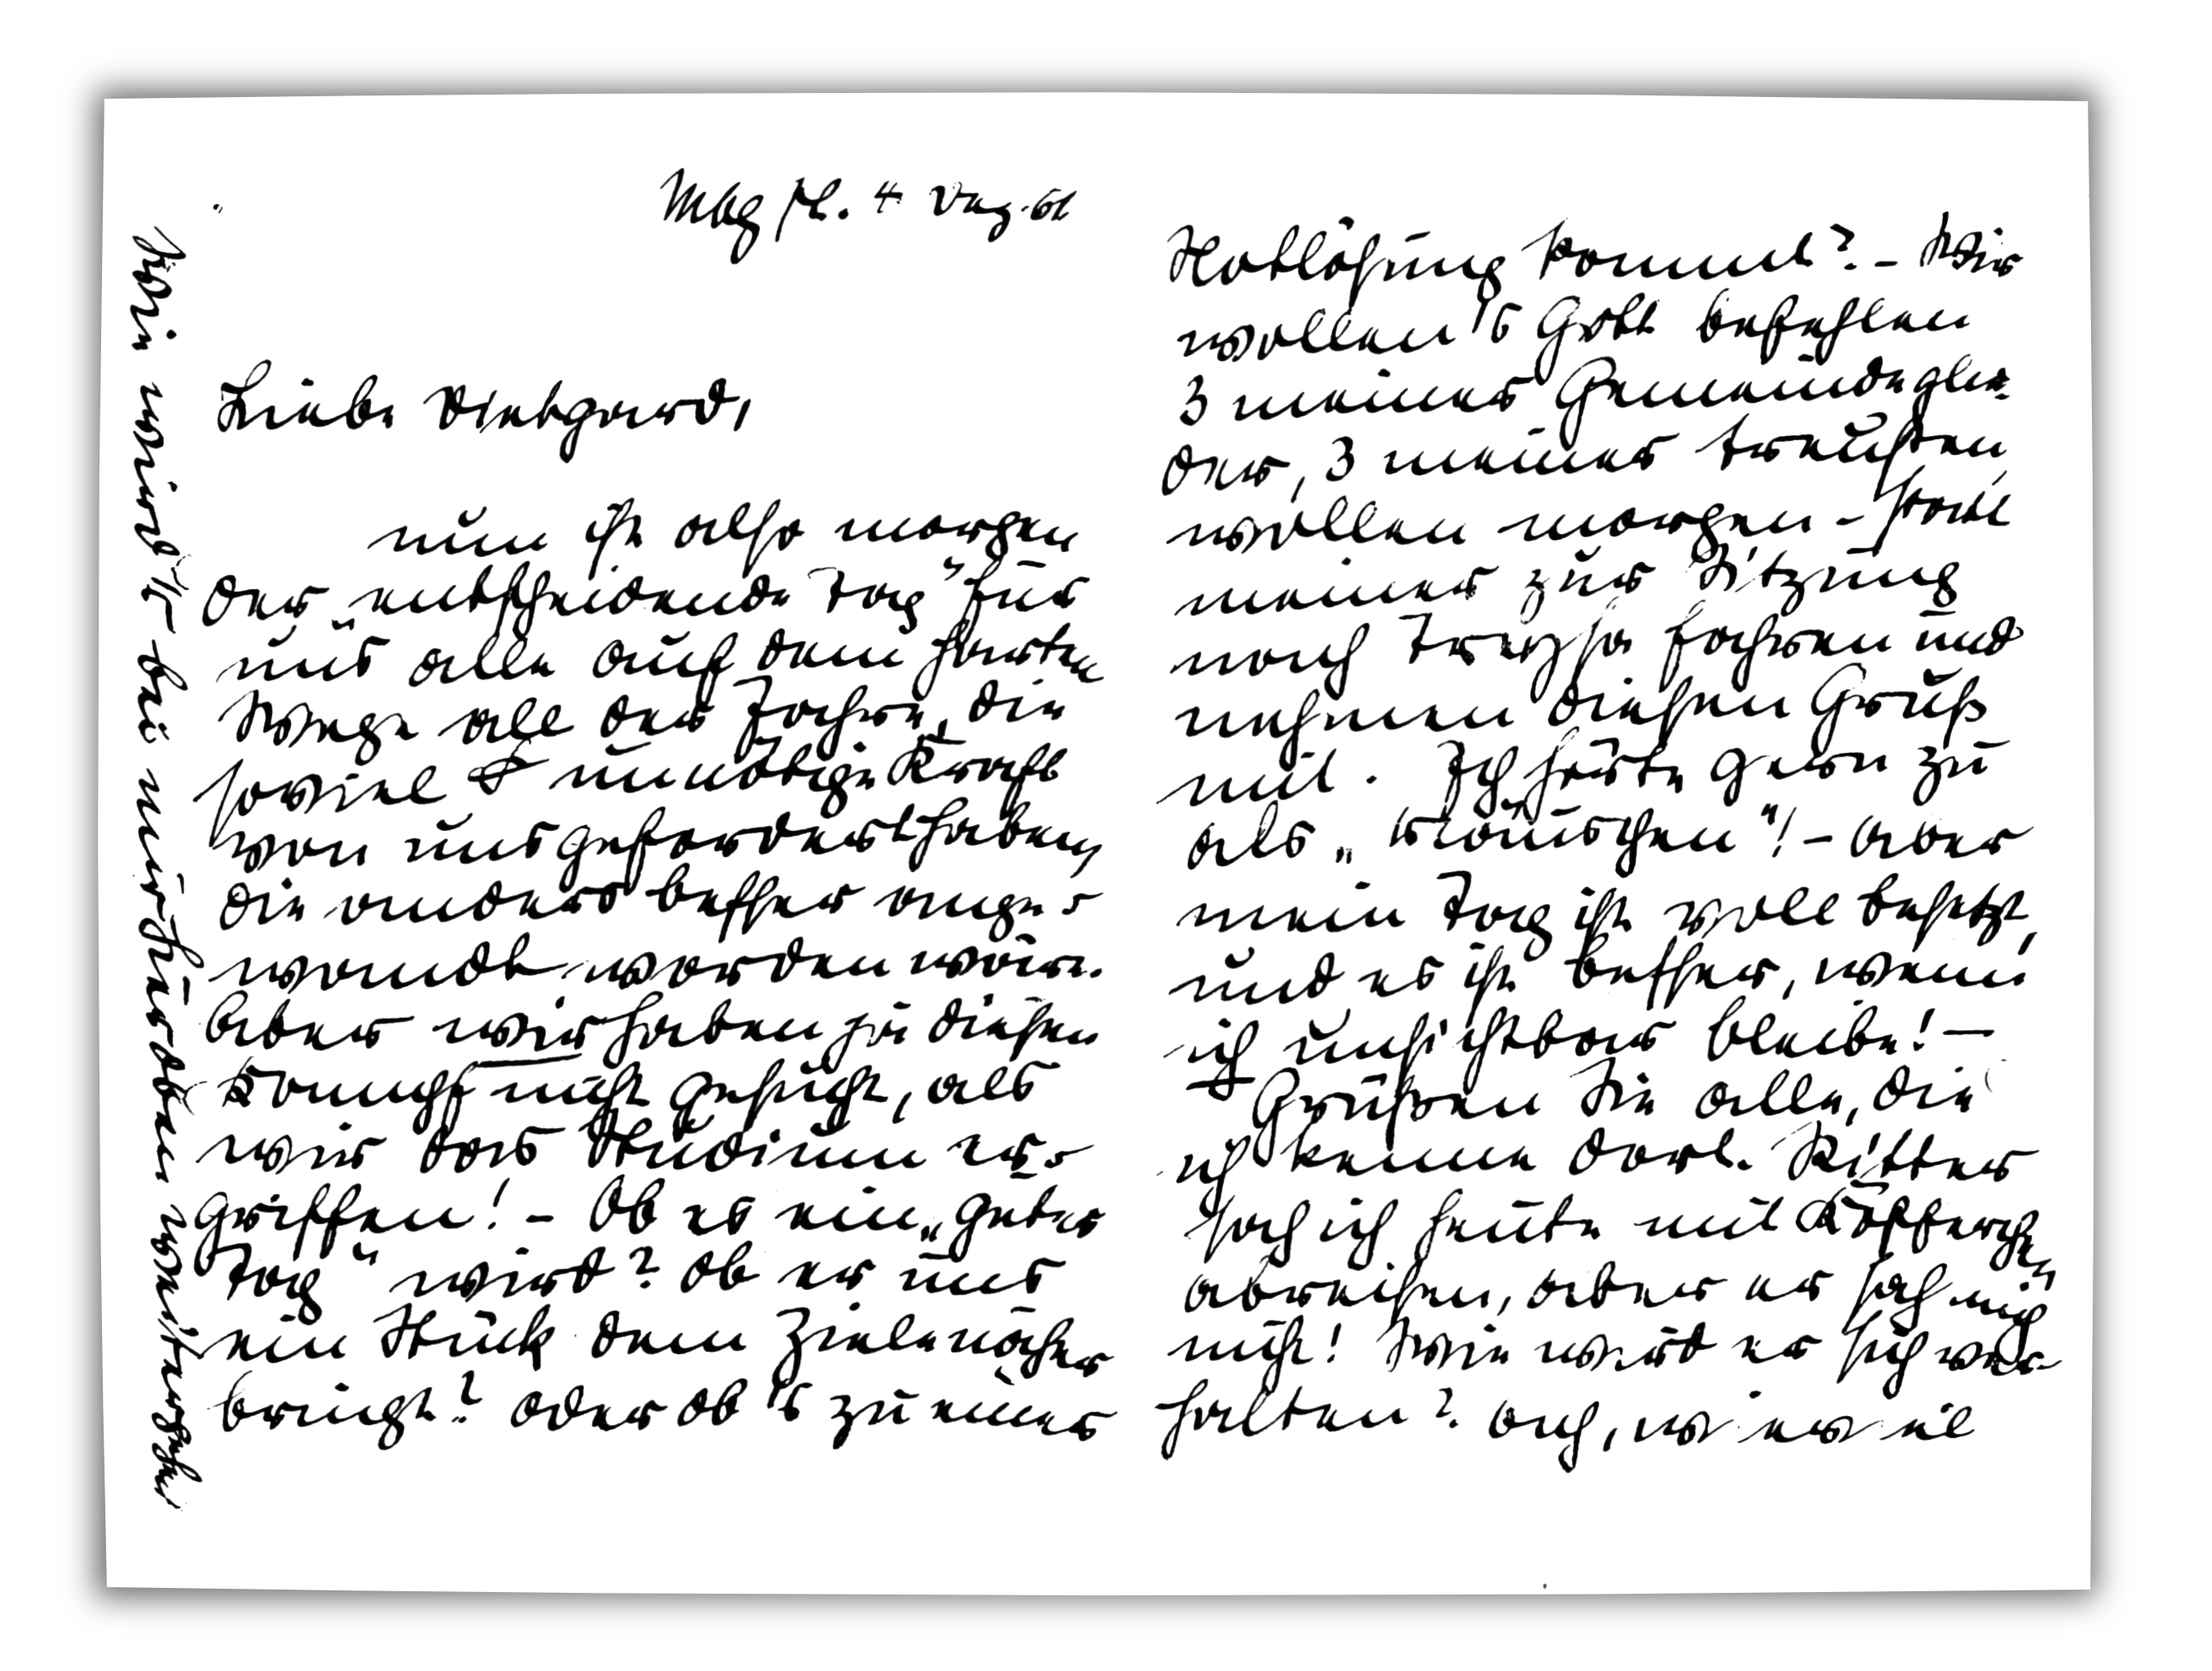 Mbg /L. 4 Dez. 61
Liebe Dietgard,
nun ist also morgen
der „entscheidende Tag" für
uns alle auf dem harten
Wege all der Jahre, die
soviel unnötige Kraft
von uns gefordert haben,
die anders besser ange-
wandt worden wäre.
Aber wir haben ja diesen
Kampf nicht gesucht, als
wir das Studium er-
griffen! - Ob es ein „guter
Tag" wird? Ob er uns
ein Stück dem Ziele näher
bringt? Oder ob's zu einer
Notlösung kommt? - Wir
wollen's Gott befehlen
3 meiner Gemeindeglie-
der, 3 meiner treusten
wollen morgen - statt
meiner zur Sitzung
nach Treysa fahren und
nehmen diesen Gruß
mit. Ich hörte gern zu
als „Mäuschen"! - Aber
mein Tag ist voll besetzt,
und es ist besser, wenn
ich unsichtbar bleibe! -
Grüßen Sie alle, die
ich kenne dort. Ritter
sah ich heute mit Köfferchen
abreisen, aber er sah mich
nicht! Wie wird er sich ver-
halten? Ach, wieviel
Kein wird's bei nur Hürden weitergehen